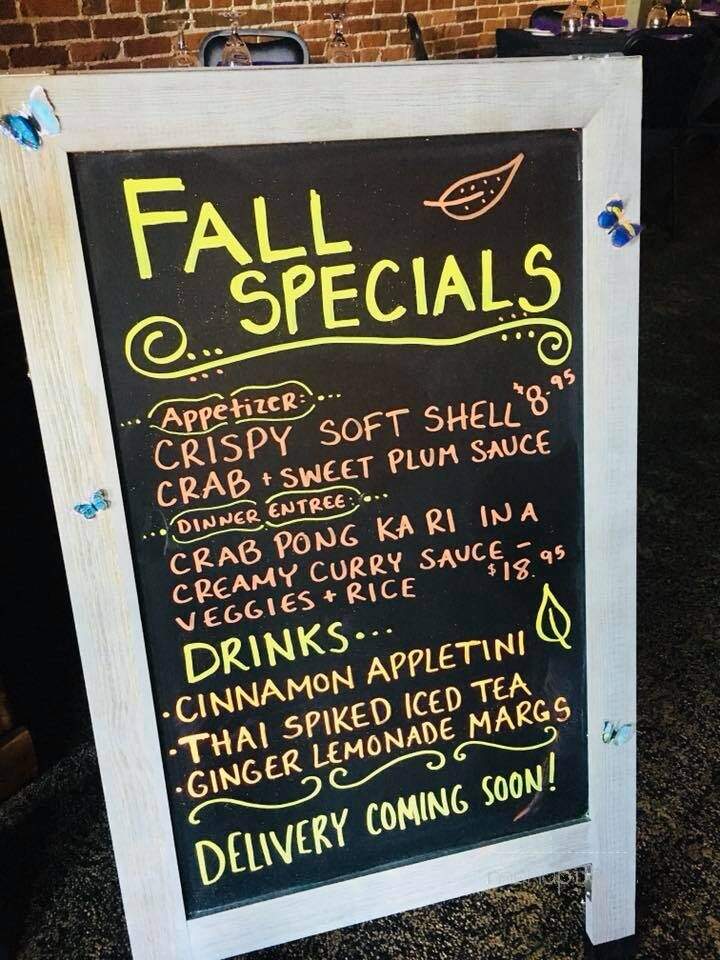 FALL
SPECIALS
Appetizer:
CRISPY SOFT SHELL $8.95
CRAB + SWEET PLUM SAUCE
DINNER ENTREE:
CRAB PONG KA RI IN A
CREAMY CURRY SAUCE -
VEGGIES + RICE $18.95
DRINKS...
• CINNAMON APPLETINI
• THAI SPIKED ICED TEA
• GINGER LEMONADE MARGS
DELIVERY COMING SOON!